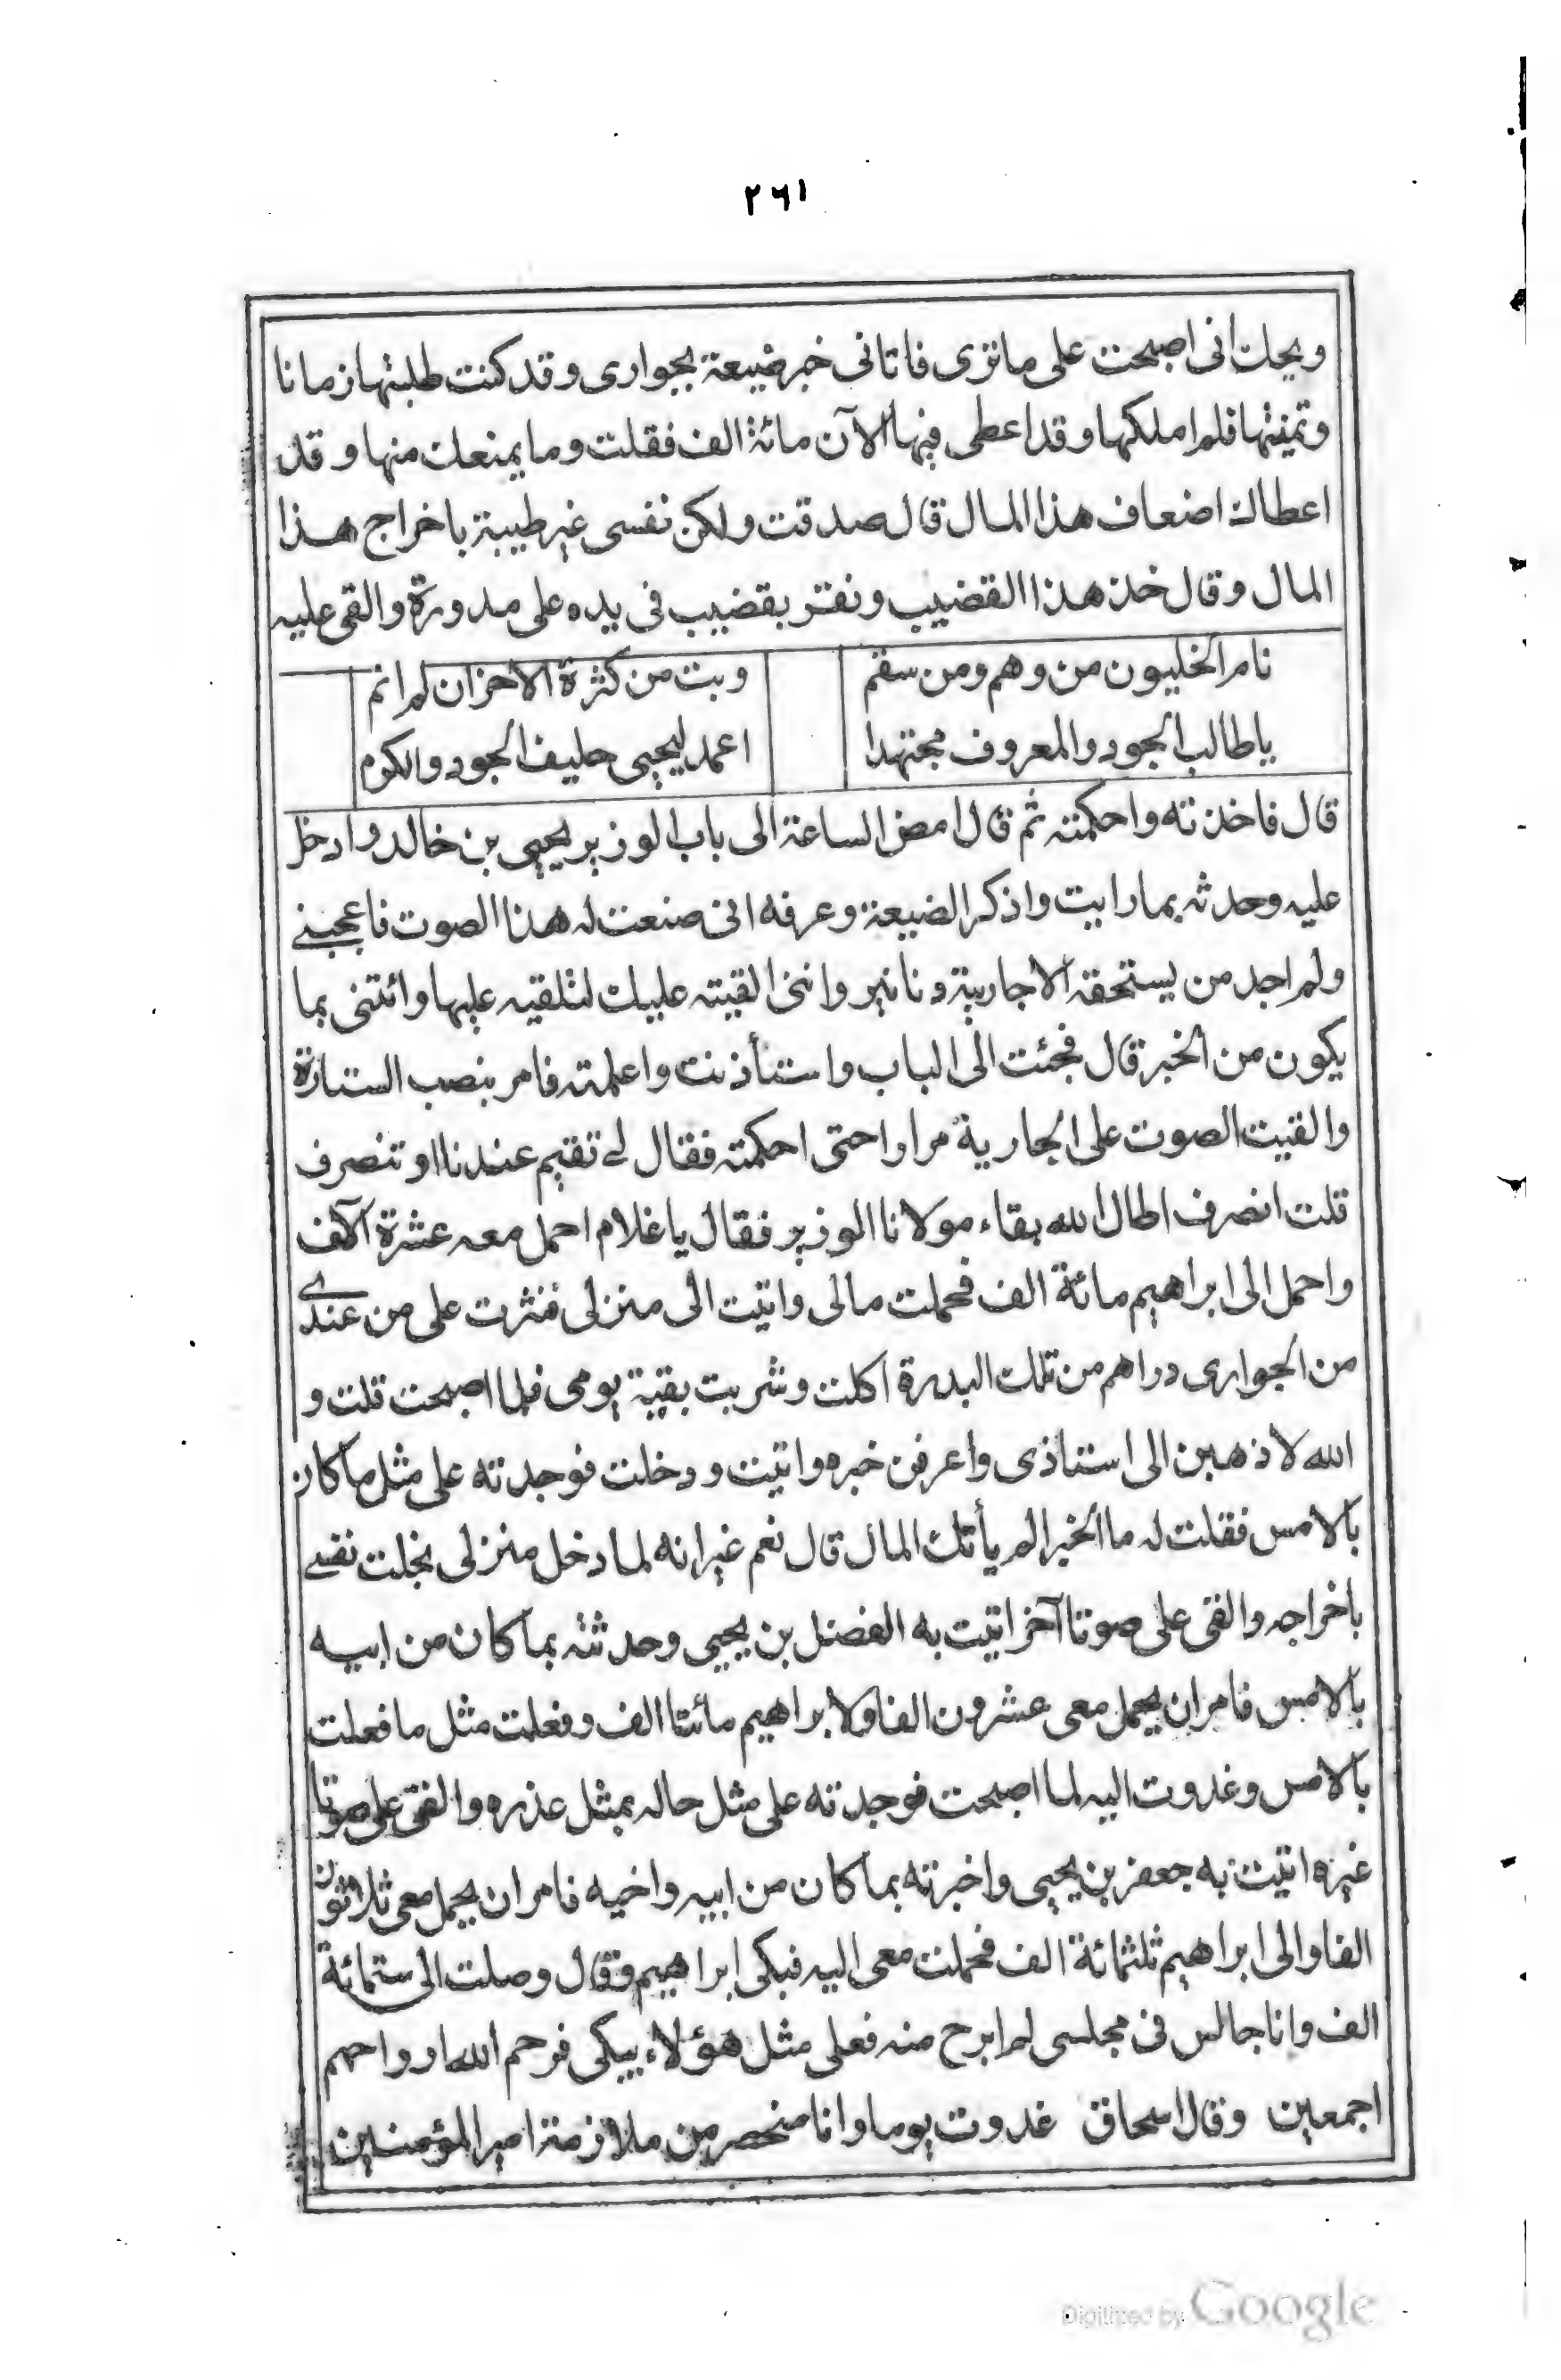 ٢٦١
ويحك انى اصبحت على ما ترى فاتانى خبر ضيعة بجوارى وقد كنت طلبتها زمانا
وتمنيتها فلم املكها وقد اعطى فيها الآن مائة الف فقلت وما يمنعك منها وقد
اعطاك اضعاف هذا المال قال صدقت ولكن نفسى غير طيبة باخراج هذا
المال وقال خذ هذا القضيب ونقر بقضيب فى يده على مدورة والقى عليه
نام الخليون من وهم ومن سقم وبت من كثرة الاحزان لم انم
يا طالب الجود والمعروف مجتهدا اعمد ليحيى حليف الجود والكرم
قال فاخذته واحكمته ثم قال امض الساعة الى باب الوزير يحيى بن خالد وادخل
عليه وحدثه بما رايت واذكر الضيعة وعرفه انى صنعت له هذا الصوت فاعجبنے
ولم اجد من يستحقه الا جاريته دنانير واننى القيته عليك لتلقيه عليها وائتنى بما
يكون من الخبر قال فجئت الى الباب واستأذنت واعلمته فامر بنصب الستارة
والقيت الصوت على الجارية مرارا حتى احكمته فقال لے تقيم عندنا او تنصرف
قلت انصرف اطال الله بقاء مولانا الوزير فقال يا غلام احمل معه عشرة آلاف
واحمل الى ابراهيم مائة الف فحملت مالى واتيت الى منزلى فنثرت على من عندے
من الجوارى دراهم من تلك البدرة اكلت وشربت بقية يومى فلما اصبحت قلت و
الله لاذهبن الى استاذى واعرفن خبره واتيت ودخلت فوجدته على مثل ما كان
بالامس فقلت له ما الخبر الم يأتك المال قال نعم غير انه لما دخل منزلى بخلت نفسے
باخراجه والقى على صوتا آخر اتيت به الفضل بن يحيى وحدثته بما كان من ابيه
بالامس فامر ان يحمل معى عشرون الفا ولابراهيم مائتا الف وفعلت مثل ما فعلت
بالامس وغدوت اليه لما اصبحت فوجدته على مثل حاله بمثل عذره والقى على صوتا
غيره اتيت به جعفر بن يحيى واخبرته بما كان من ابيه واخيه فامر ان يحمل معى ثلاثون
الفا والى ابراهيم ثلثمائة الف فحملت معى اليه فبكى ابراهيم وقال وصلت الى ستمائة
الف وانا جالس فى مجلسى لم ابرح منه فعلى مثل هؤلاء يبكى فرحم الله ارواحهم
اجمعين وقال اسحاق غدوت يوما وانا منحصر من ملازمة امير المؤمنين
Digitized by Google